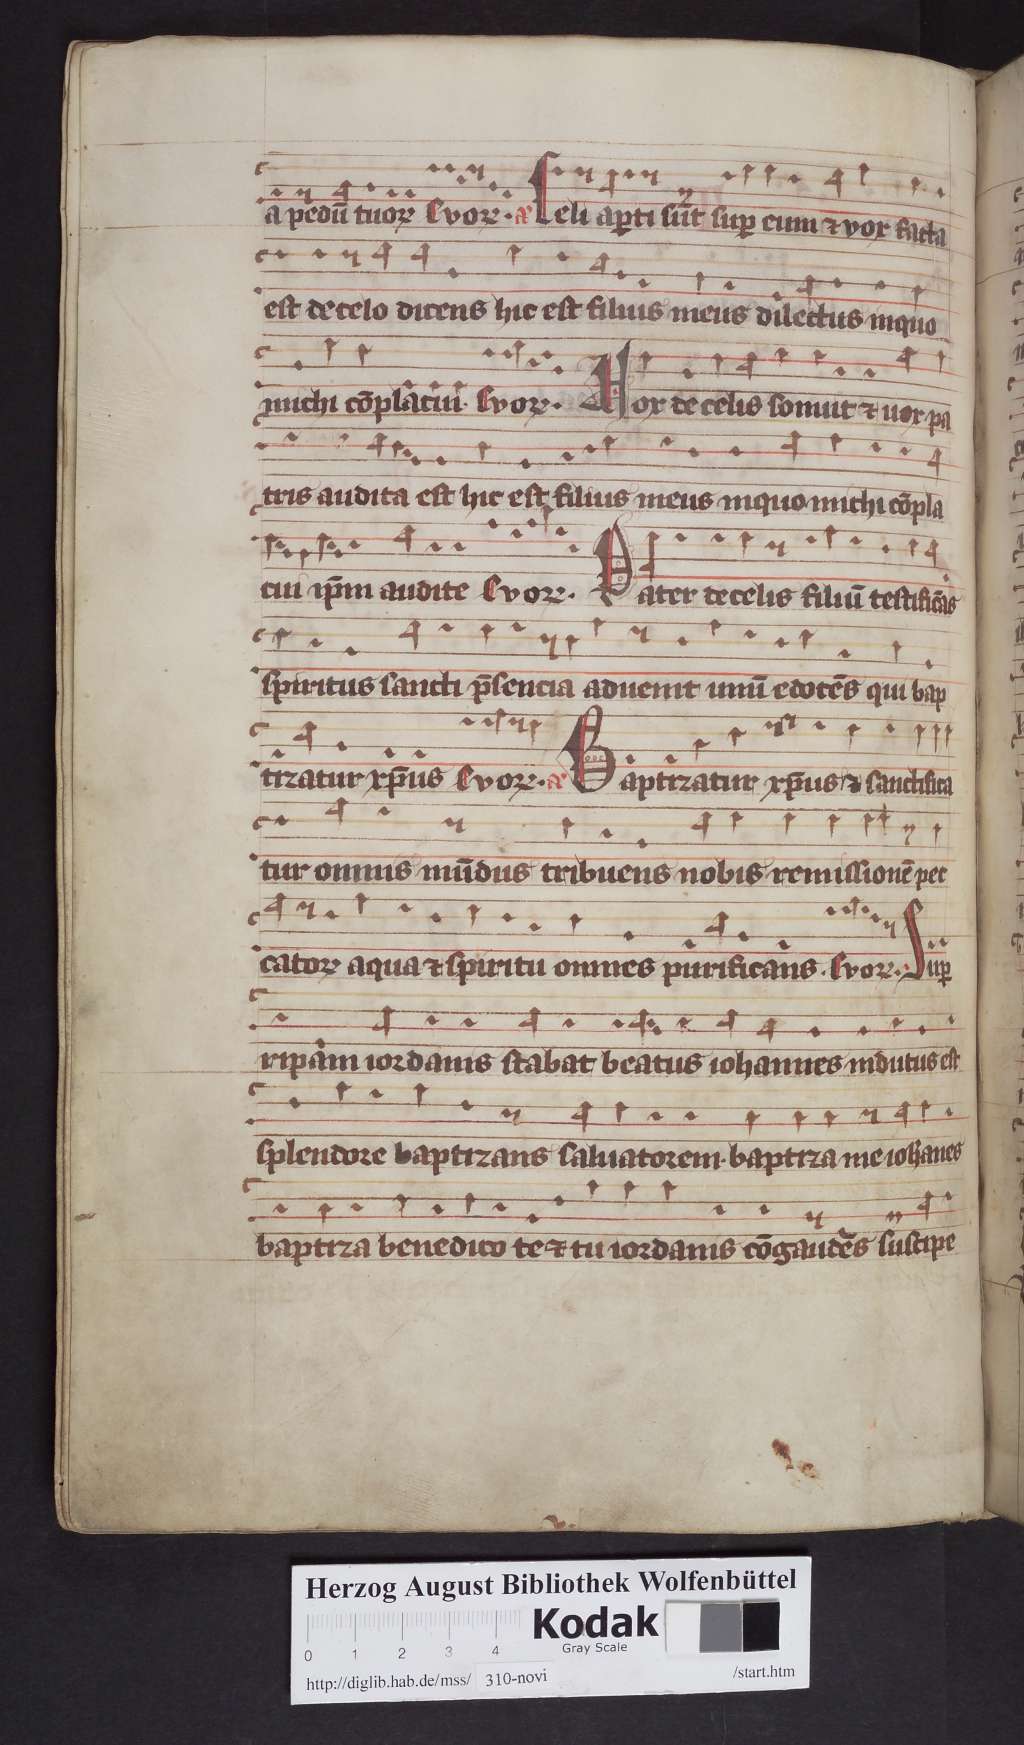 a pedū tuoꝝ Evoꝝ. a Celi aꝑti sūt suꝑ eum ⁊ vox facta
est de celo dicens hic est filius meus dilectus in quo
michi cōplacui. Evoꝝ. Vox de celis sonuit ⁊ uox pa
tris audita est hic est filius meus in quo michi cōpla
cui ip̄m audite Evoꝝ. Pater de celis filiū testificās
spiritus sancti p̄sencia aduenit unū edocēs qui bap
tizatur xp̄us Evoꝝ. a Baptizatur xp̄us ⁊ sanctifica
tur omnis mūdus tribuens nobis remissionē pec
catoꝝ aqua ⁊ spiritu omnes purificans. Evoꝝ. Suꝑ
ripam iordanis stabat beatus iohannes indutus est
splendore baptizans saluatorem. baptiza me iohānes
baptiza benedico te ⁊ tu iordanis cōgaudēs suscipe
Herzog August Bibliothek Wolfenbüttel
Kodak
Gray Scale
0 1 2 3 4
http://diglib.hab.de/mss/ 310-novi /start.htm